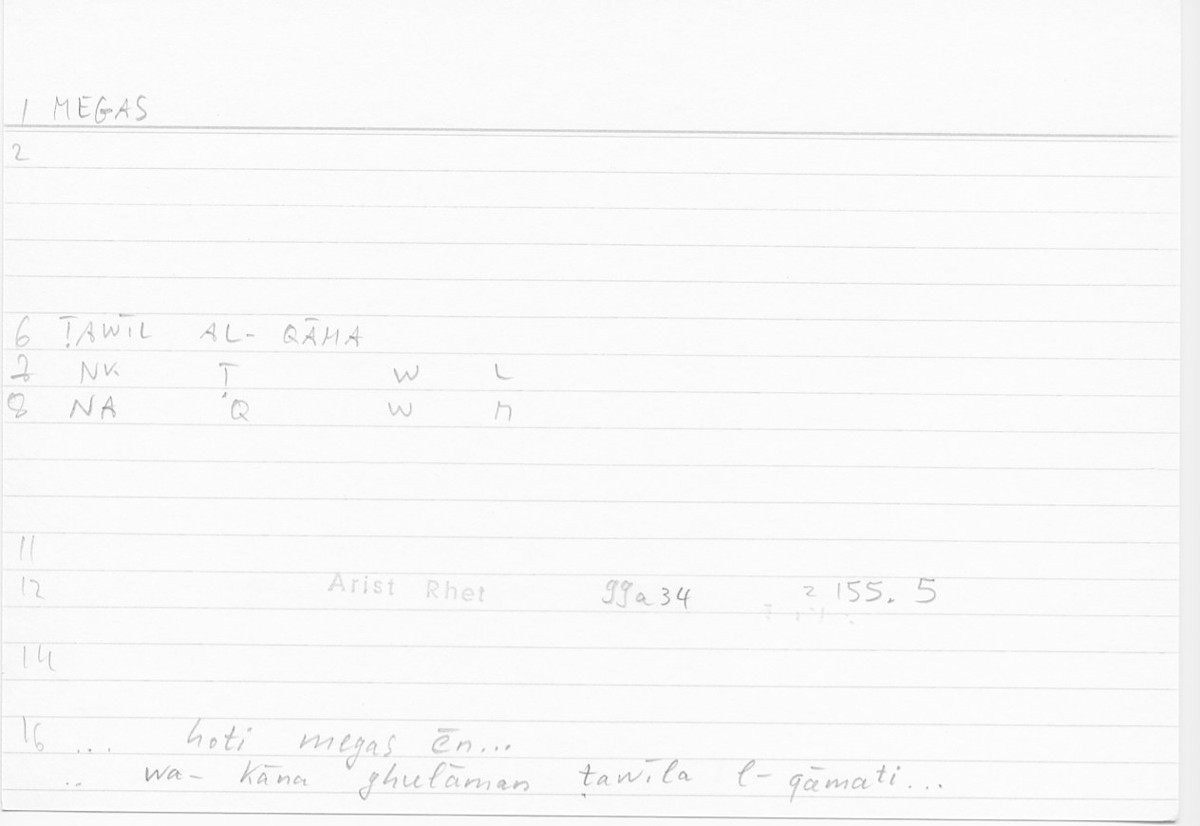 1 MEGAS
2
6 ṬAWĪL AL- QĀMA
7 NK Ṭ W L
8 NA Q W M
11
12 Arist Rhet 99a34 2 155.5
14
16 ... hoti megas ēn...
.. wa- kāna ghulāman ṭawīla l- qāmati...